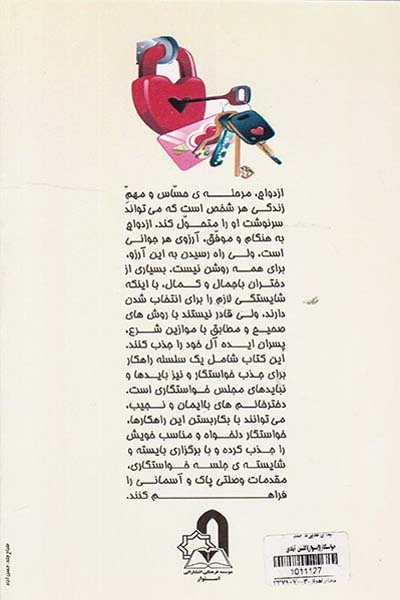 ازدواج، مرحله ی حسّاس و مهمّ
زندگی هر شخص است که می تواند
سرنوشت او را متحوّل کند. ازدواج
به هنگام و موفّق، آرزوی هر جوانی
است، ولی راه رسیدن به این آرزو،
برای همه روشن نیست. بسیاری از
دختران باجمال و کمال، با اینکه
شایستگی لازم را برای انتخاب شدن
دارند، ولی قادر نیستند با روش های
صحیح و مطابق با موازین شرع،
پسران ایده آل خود را جذب کنند.
این کتاب شامل یک سلسله راهکار
برای جذب خواستگار و نیز بایدها و
نبایدهای مجلس خواستگاری است.
دخترخانم های باایمان و نجیب،
می توانند با بکاربستن این راهکارها،
خواستگار دلخواه و مناسب خویش
را جذب کرده و با برگزاری بایسته و
شایسته ی جلسه خواستگاری،
مقدمات وصلتی پاک و آسمانی را
فراهم کنند.
موسسه فرهنگی انتشاراتی
استوار
1011127